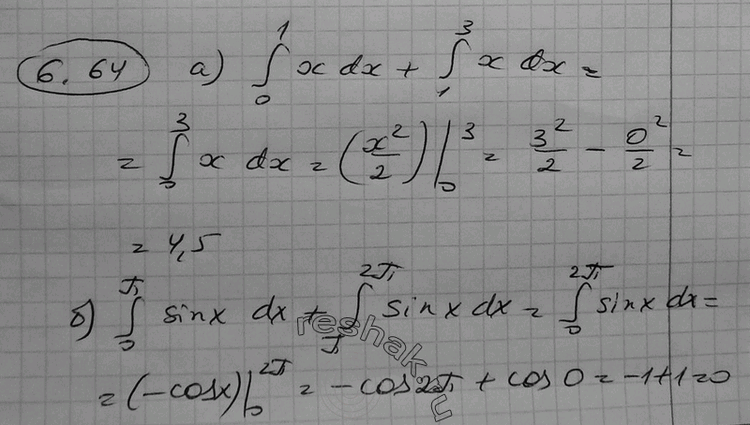 6.64 а) ∫₀¹ x dx + ∫₁³ x dx =
= ∫₀³ x dx = (x²/2)|₀³ = 3²/2 − 0²/2 =
= 4,5
б) ∫₀^π sinx dx + ∫_π^2π sinx dx = ∫₀^2π sinx dx =
= (−cosx)|₀^2π = −cos2π + cos0 = −1+1=0
reshak